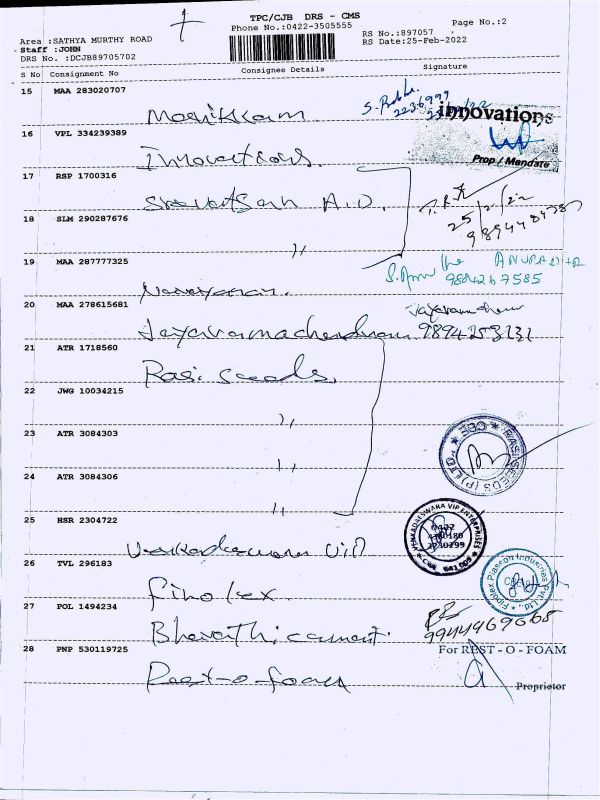 TPC/CJB DRS - CMS
Phone No.:0422-3505555
Page No.:2
Area :SATHYA MURTHY ROAD
RS No.:897057
Staff :JOHN
RS Date:25-Feb-2022
DRS No. :DCJB89705702
S No Consignment No Consignee Details Signature
15 MAA 283020707
Manikkam
innovations
16 VPL 334239389
Innovations.
Prop / Mandate
17 RSP 1700316
A.D.
25/2/22
18 SLM 290287676
,,
19 MAA 287777325
ANURADHA
9884267585
Narayanan.
20 MAA 278615681
Jayaramachandran 9894253131
21 ATR 1718560
Rasi seeds,
22 JWG 10034215
,,
23 ATR 3084303
,,
RASI SEEDS (P) LTD ★ CBE ★
24 ATR 3084306
,,
25 HSR 2304722
VENKADESWARA VIP ENTERPRISES
0422
Venkadeswara VIP
26 TVL 296183
Finolex
Finolex Plasson Industries Pvt. Ltd.,
27 POL 1494234
9944969668
Bharathi cement.
28 PNP 530119725
For REST - O - FOAM
Rest-o-foam
Proprietor